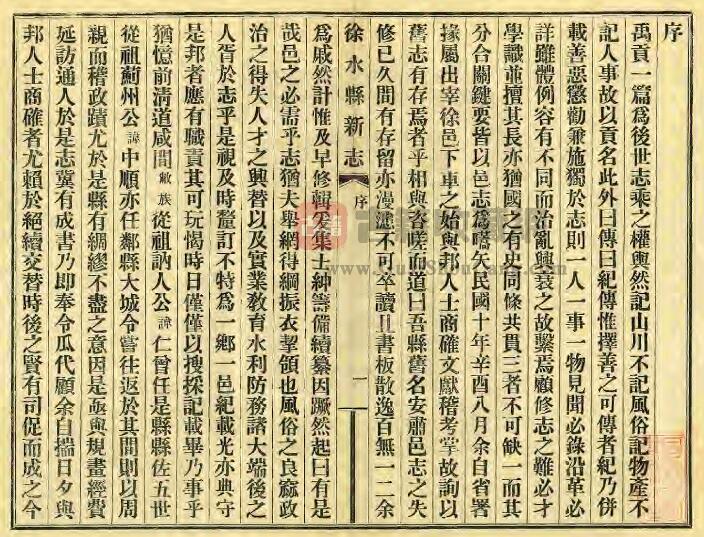 序
禹貢一篇爲後世志乘之權輿然記山川不記風俗記物產不
記人事故以貢名此外曰傳曰紀傳惟擇善之可傳者紀乃併
載善惡懲勸兼施獨於志則一人一事一物見聞必錄沿革必
詳雖體例容有不同而治亂興衰之故繫焉顧修志之難必才
學識並擅其長亦猶國之有史同條共貫三者不可缺一而其
分合關鍵要皆以邑志爲嚆矢民國十年辛酉八月余自省署
掾屬出宰徐邑下車之始與邦人士商確文獻稽考掌故詢以
舊志有存焉者乎相與咨嗟而道曰吾縣舊名安肅邑志之失
修已久間有存留亦漫漶不可卒讀且書板散逸百無一二余
徐水縣新志 序 一
爲戚然計惟及早修輯爰集士紳籌備續纂因蹶然起曰有是
哉邑之必需乎志猶夫舉網得綱振衣挈領也風俗之良窳政
治之得失人才之興替以及實業教育水利防務諸大端後之
人胥於志乎是視及時釐訂不特爲一鄉一邑紀載光亦典守
是邦者應有職責其可玩愒時日僅僅以搜採記載畢乃事乎
猶憶前清道咸間敝族從祖訥人公諱仁曾任是縣縣佐五世
從祖薊州公諱中順亦任鄰縣大城令嘗往返於其間則以周
親而稽政蹟尤於是縣有綢繆不盡之意因是亟與規畫經費
延訪通人於是志冀有成書乃即奉令瓜代顧余自揣日夕與
邦人士商確者尤賴於絕續交替時後之賢有司促而成之今